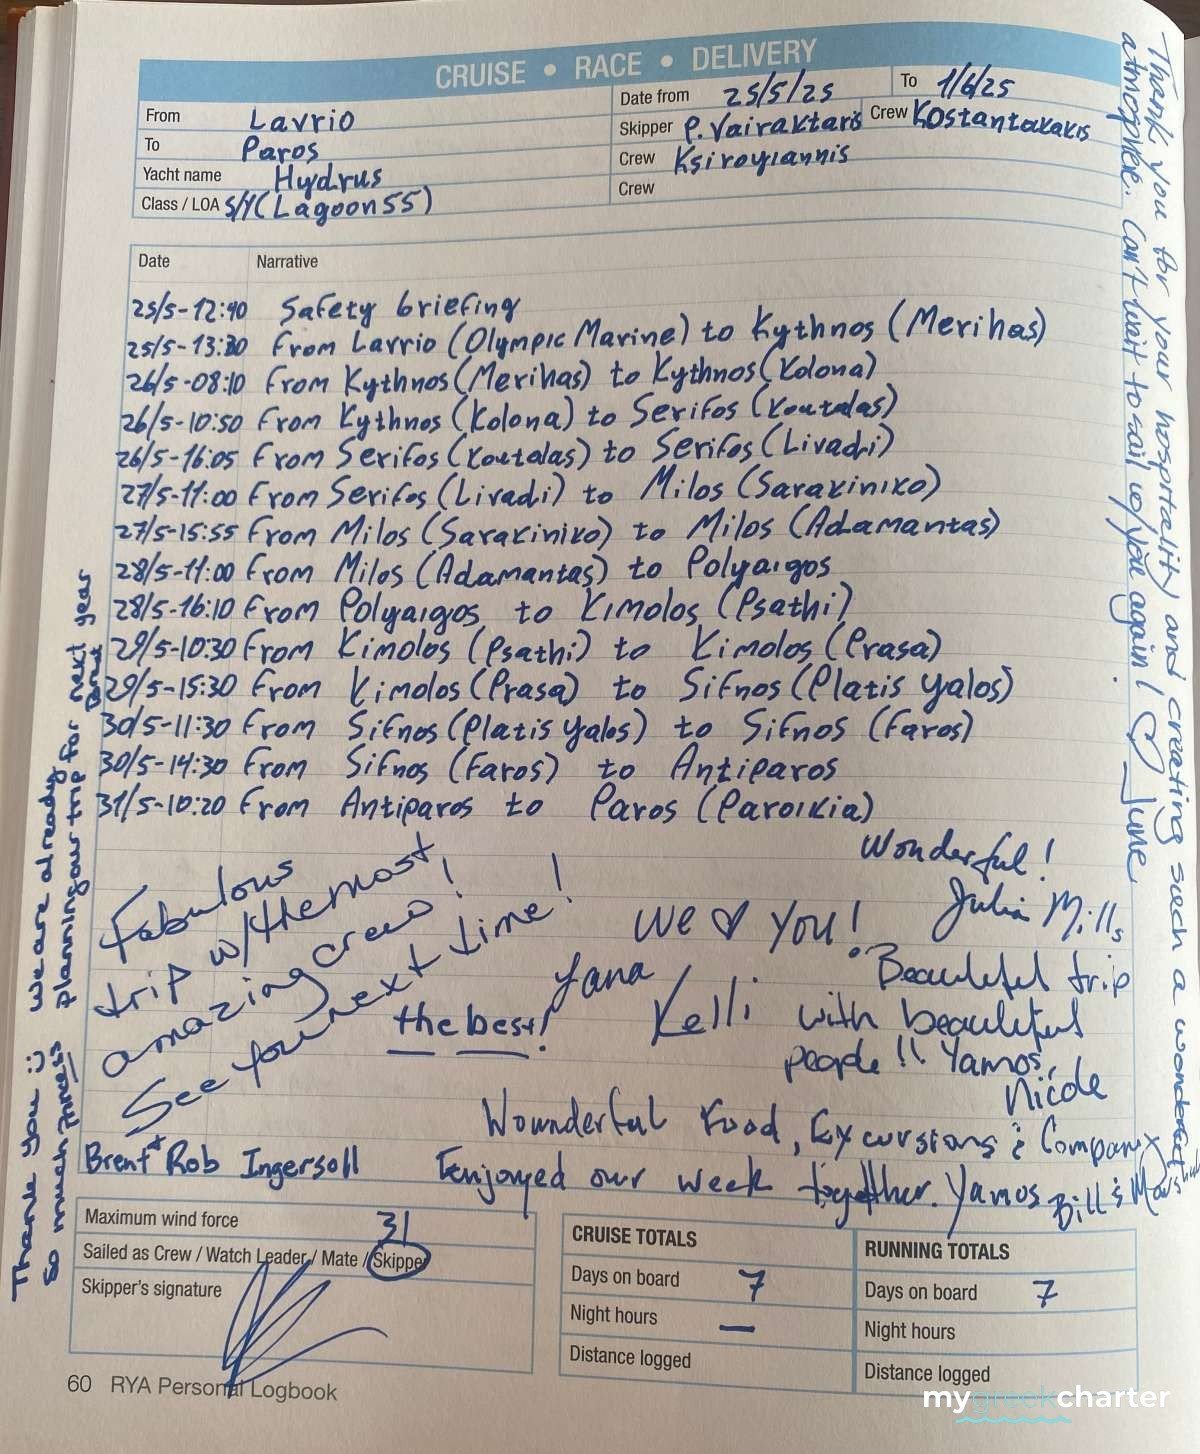 CRUISE • RACE • DELIVERY
From Lavrio
To Paros
Yacht name Hydrus
Class / LOA S/Y (Lagoon 55)
Date from 25/5/25 To 1/6/25
Skipper P. Vairaktaris Crew Kostantakakis
Crew Ksiroyiannis
Crew
Date Narrative
25/5-12:40 Safety briefing
25/5-13:30 From Lavrio (Olympic Marine) to Kythnos (Merihas)
26/5-08:10 From Kythnos (Merihas) to Kythnos (Kolona)
26/5-10:50 From Kythnos (Kolona) to Serifos (Koutalas)
26/5-16:05 From Serifos (Koutalas) to Serifos (Livadi)
27/5-11:00 From Serifos (Livadi) to Milos (Sarakiniko)
27/5-15:55 From Milos (Sarakiniko) to Milos (Adamantas)
28/5-11:00 From Milos (Adamantas) to Polyaigos
28/5-16:10 From Polyaigos to Kimolos (Psathi)
29/5-10:30 From Kimolos (Psathi) to Kimolos (Prasa)
29/5-15:30 From Kimolos (Prasa) to Sifnos (Platis yalos)
30/5-11:30 From Sifnos (Platis yalos) to Sifnos (Faros)
30/5-14:30 From Sifnos (Faros) to Antiparos
31/5-10:20 From Antiparos to Paros (Paroikia)
Fabulous
trip w/the most
amazing crew!
See you next time!
Brent + Rob Ingersoll
the best!
We ♥ You!
Yana
Kelli
Wonderful!
Julia Mills
Beautiful trip
with beautiful
people!! Yamos,
Nicole
Wounderful Food, Excursions & Company
Eenjoyed our week together. Yamos Bill &
Thank you for your hospitality and creating such a wonderful
atmosphere. Can't wait to sail w/you again! ♡ June
Thank you :) We are already
So much planning our trip for next year
Maximum wind force 31
Sailed as Crew / Watch Leader / Mate / Skipper
Skipper's signature
CRUISE TOTALS
Days on board 7
Night hours —
Distance logged
RUNNING TOTALS
Days on board 7
Night hours
Distance logged
60 RYA Personal Logbook
mygreekcharter